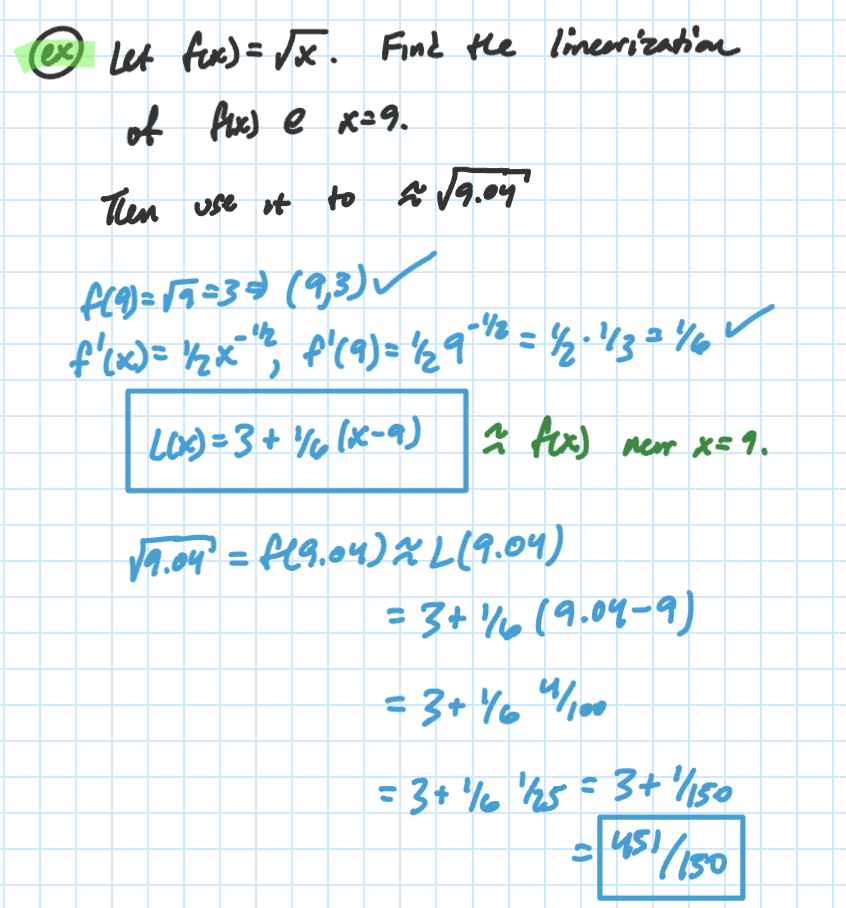 ex Let f(x) = √x. Find the linearization
of f(x) @ x=9.
Then use it to ≈ √9.04
f(9) = √9 = 3 ⇒ (9,3) ✓
f'(x) = 1/2 x^(-1/2), f'(9) = 1/2 9^(-1/2) = 1/2 · 1/3 = 1/6 ✓
L(x) = 3 + 1/6 (x-9) ≈ f(x) near x=9.
√9.04 = f(9.04) ≈ L(9.04)
= 3 + 1/6 (9.04-9)
= 3 + 1/6 4/100
= 3 + 1/6 1/25 = 3 + 1/150
= 451/150